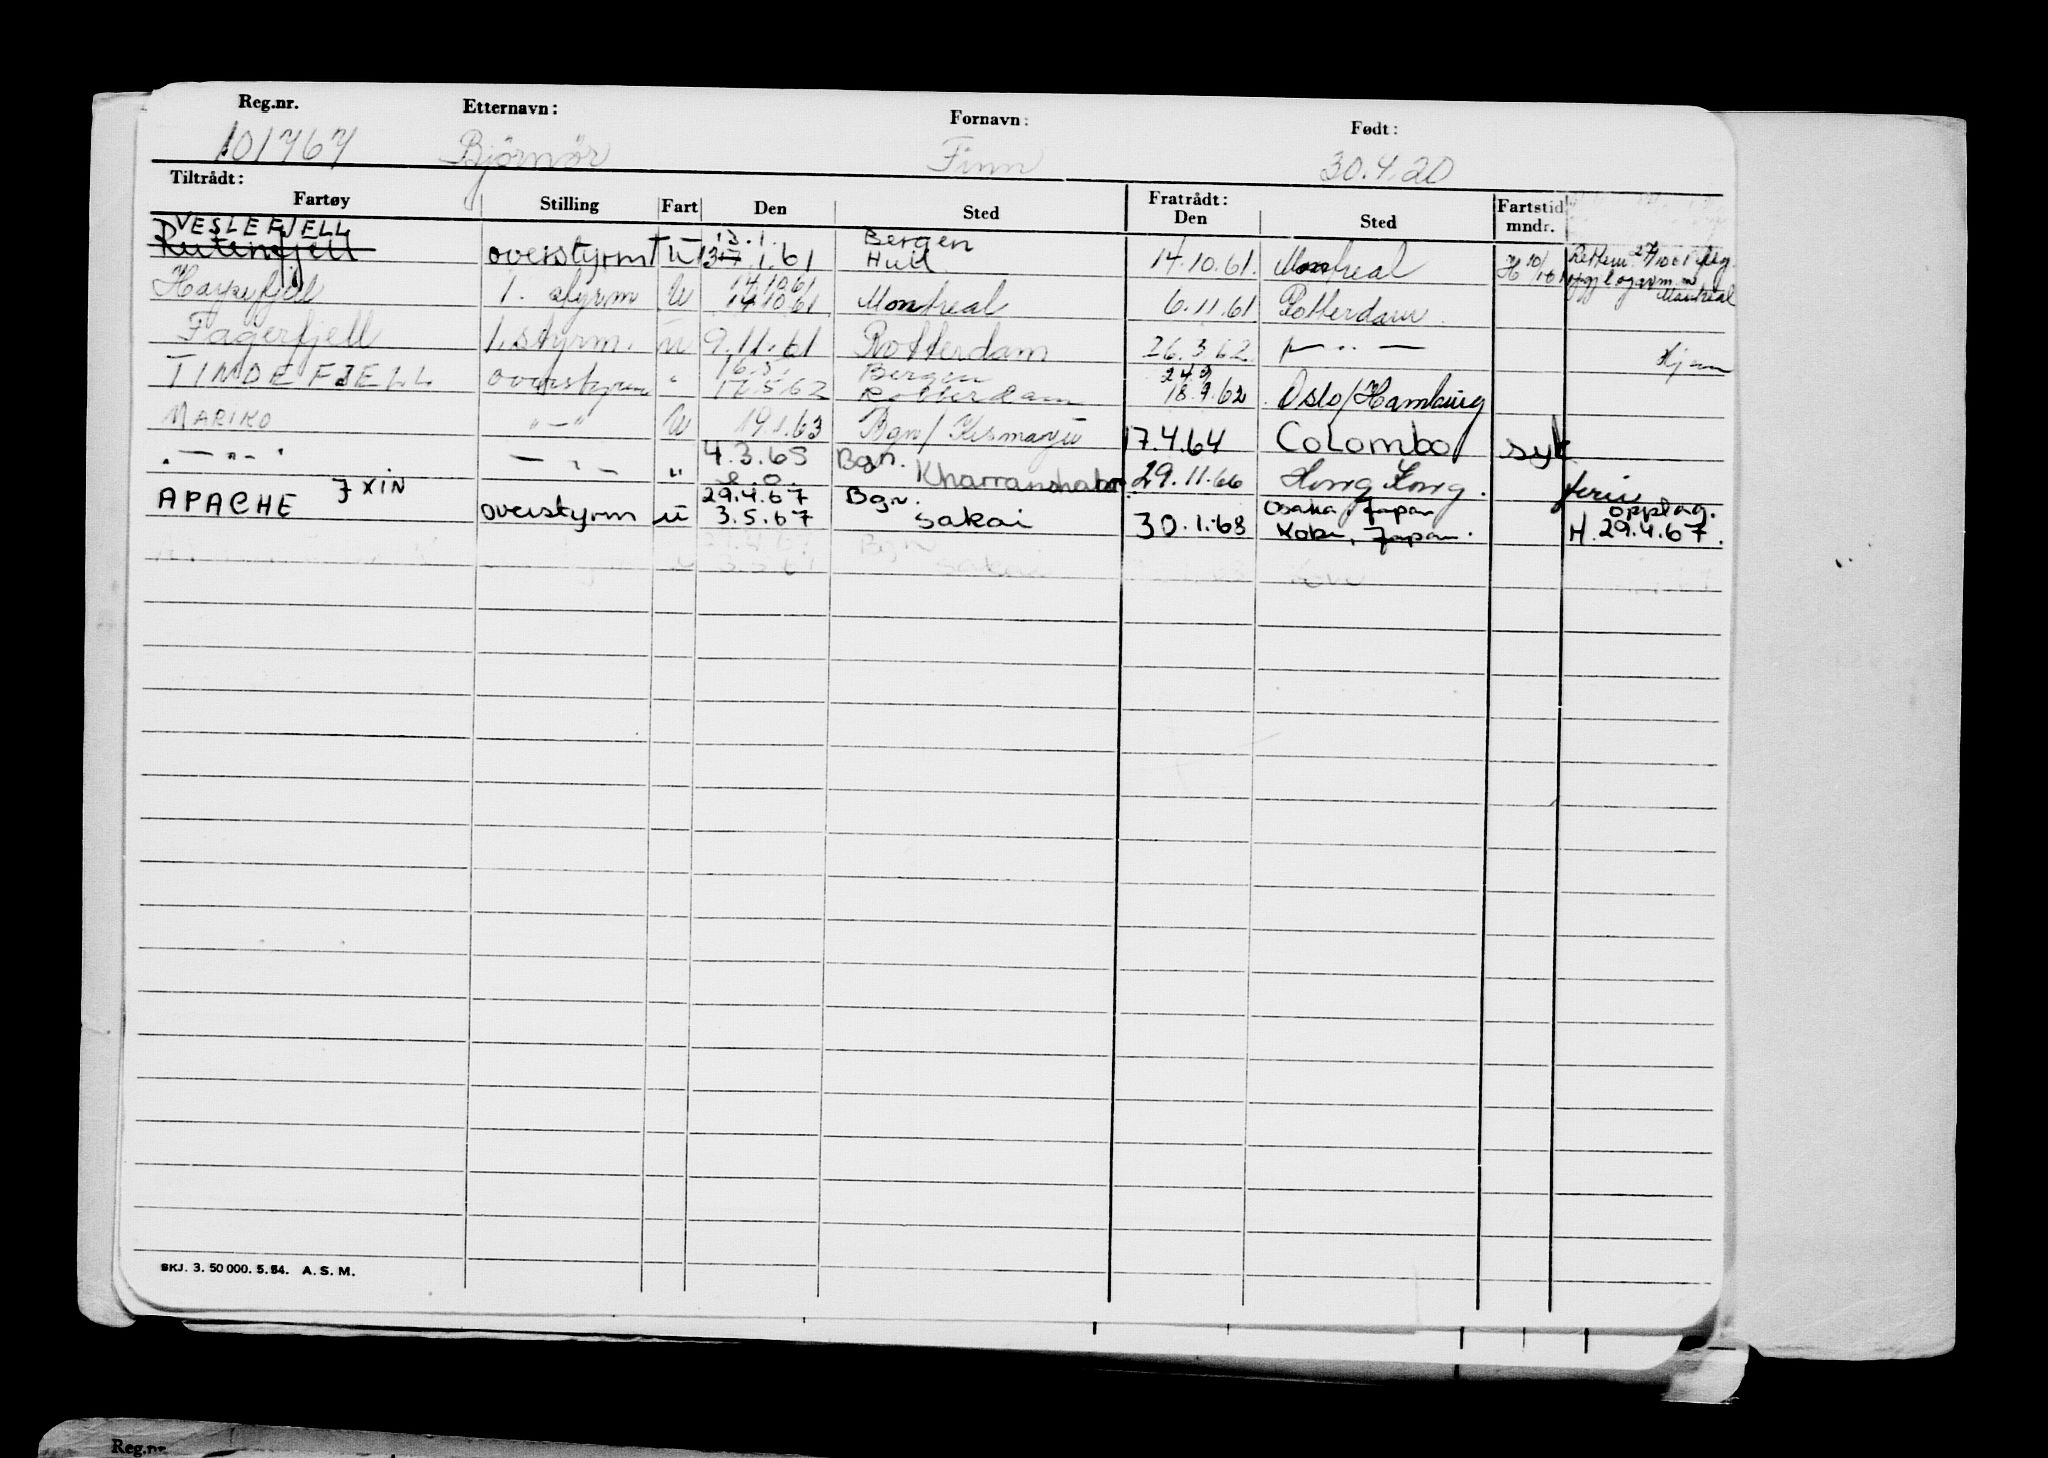 Reg.nr. Etternavn: Fornavn: Født:
101767 Björnör Finn 30.4.20
Tiltrådt: Fratrådt:
Fartøy Stilling Fart Den Sted Den Sted Fartstid mndr.
VESLEFJELL 12.1. Bergen
Rutenfjell overstyrm U 13 1.61 Hull 14.10.61. Montreal
14.10.61
1. styrm U 14.10.61 Montreal 6.11.61 Rotterdam Montreal
Fagerfjell 1. styrm. U 9.11.61 Rotterdam 26.3.62 — " — Hjem
16.5. Bergen 24.9
TINDEFJELL overstyrm " 17.5.62 Rotterdam 18.9.62 Oslo/Hamburg
MARIKO " — " U 19.1.63 Bgn/Kismayu 17.4.64 COLOMBO syk
" — " — " — " — " 4.3.65 Bgn. Kharramshahr 29.11.66 Hong Kong. ferie
JXIN 29.4.67 Bgn. Osaka, Japan opplag.
APACHE overstyrm U 3.5.67 Sakai 30.1.68 Kobe, Japan. H. 29.4.67.
Bgn
3.5.67 Sakai
SKJ. 3. 50 000. 5. 54. A. S. M.
Reg.nr.